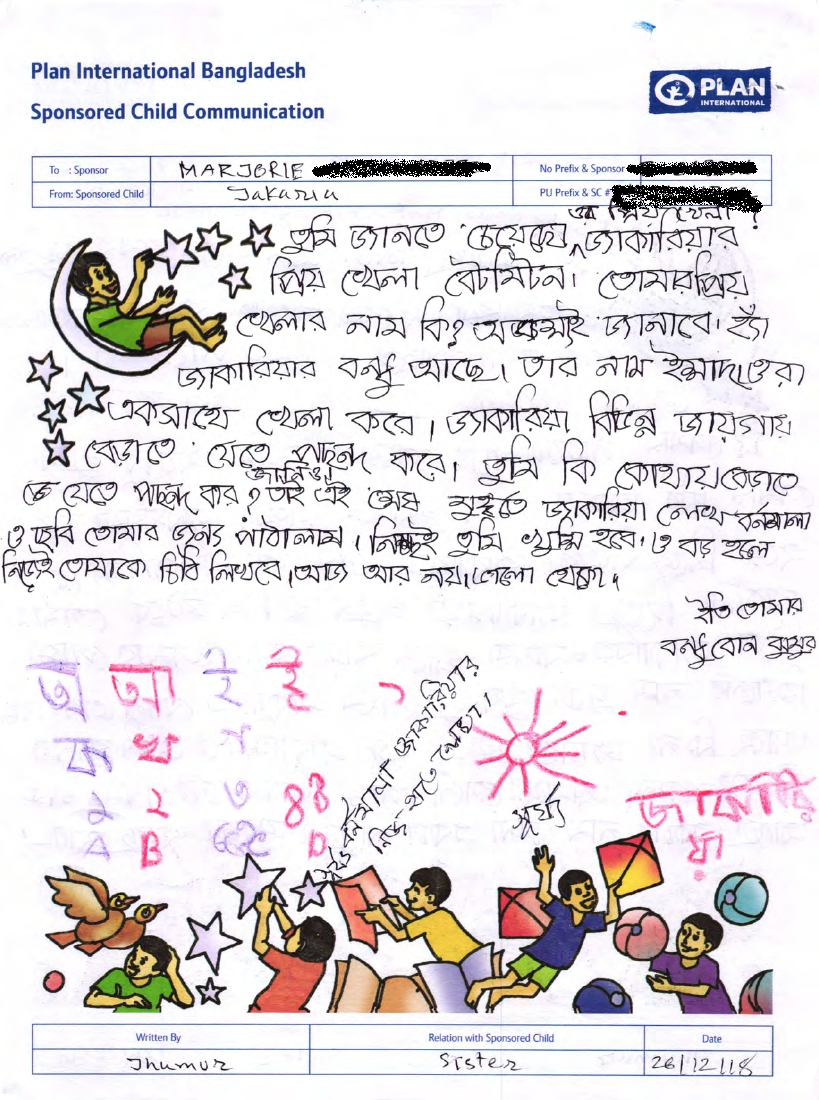 Plan International Bangladesh
Sponsored Child Communication
PLAN
INTERNATIONAL
To : Sponsor MARJORIE No Prefix & Sponsor
From: Sponsored Child Jakaria PU Prefix & SC #
এর প্রিয় খেলা ?
তুমি জানতে চেয়েছো জ্যাকারিয়ার
প্রিয় খেলা বেটমিটন। তোমার প্রিয়
খেলার নাম কি? অবশ্যই জানাবে। হ্যাঁ
জ্যাকারিয়ার বন্ধু আছে। তার নাম ইমাদ। ওরা
একসাথে খেলা করে। জ্যাকারিয়া বিভিন্ন জায়গায়
বেড়াতে যেতে পছন্দ করে। তুমি কি কোথায় বেড়াতে
যেতে পছন্দ কর? জানিও। তাই এই শেষ মুহুর্তে জ্যাকারিয়া লেখা বর্নমালা
ও ছবি তোমার জন্য পাঠালাম। নিশ্চই তুমি খুশি হবে। ও বড় হলে
নিজেই তোমাকে চিঠি লিখবে। আজ আর নয়।
ইতি তোমার
বন্ধু বোন ঝুমুর
অ আ ই ঈ
ক খ গ
১ ২ ৩ ৪৪
A B C D
বর্নমালা জ্যাকারিয়ার
নিজ হাতে লেখা।
সূর্য্য
জাকারি
য়া
Written By Relation with Sponsored Child Date
Jhumur Sister 26/12/18